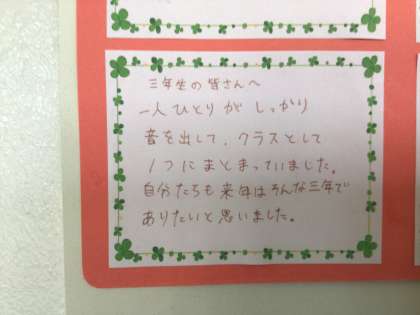 三年生の皆さんへ
一人ひとりがしっかり
音を出して、クラスとして
1つにまとまっていました。
自分たちも来年はそんな三年で
ありたいと思いました。